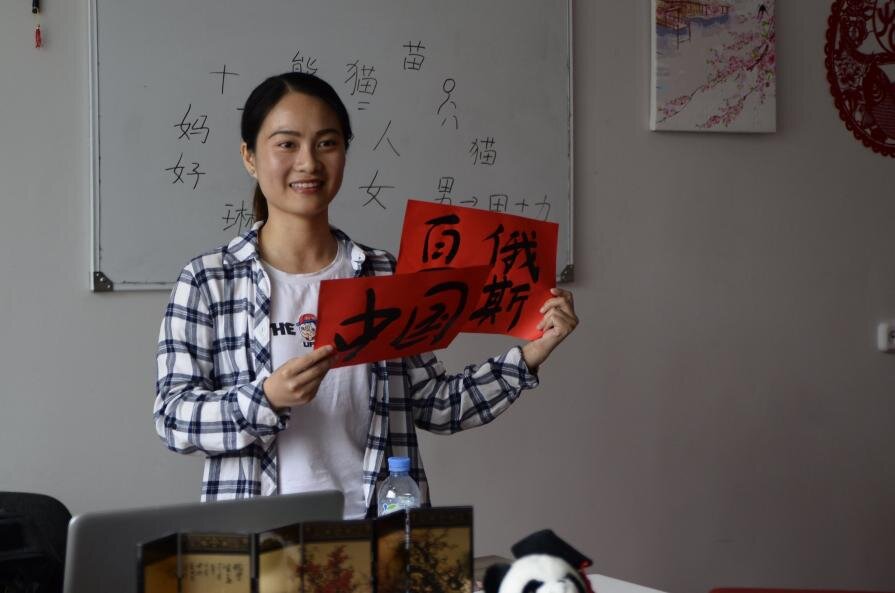 十 熊 猫 苗
妈 人 猫
好 女 男→田+力
琳
俄
斯
中国
HE